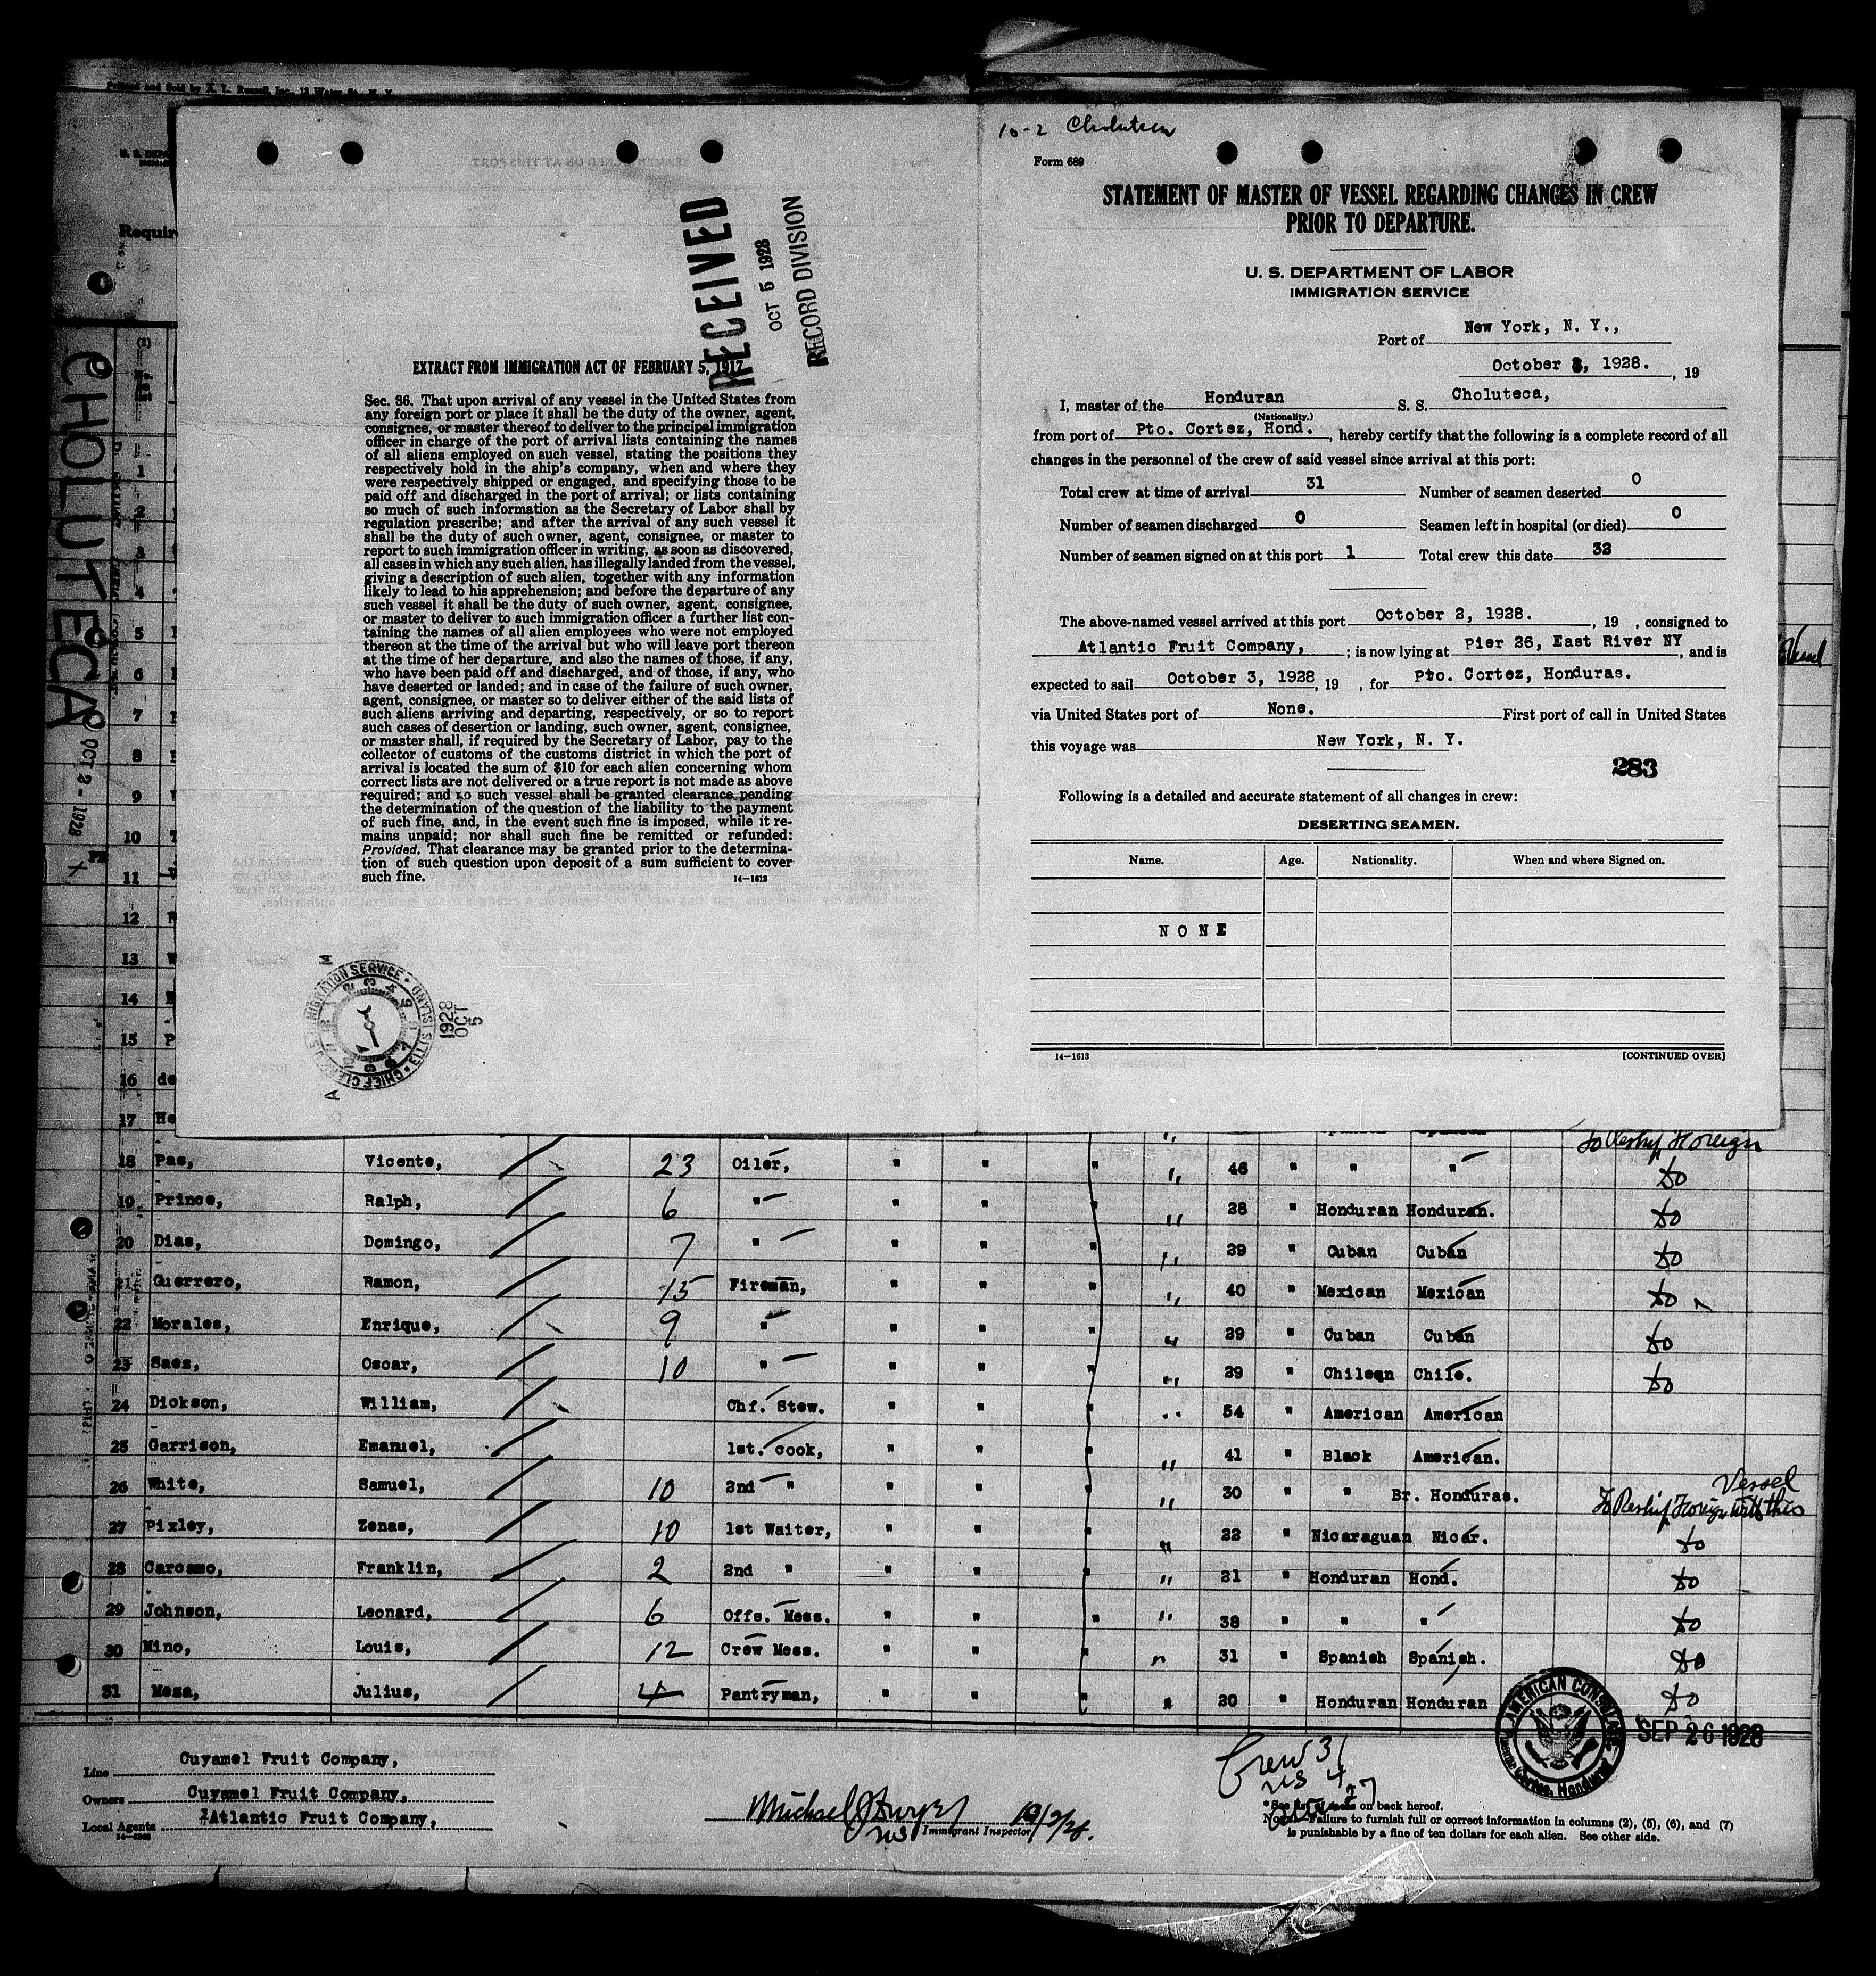 Printed and Sold by A. L. Russell, Inc., 13 Water St., N. Y.
10-2 Choluteca
Form 689
STATEMENT OF MASTER OF VESSEL REGARDING CHANGES IN CREW
PRIOR TO DEPARTURE.
U. S. DEPARTMENT OF LABOR
IMMIGRATION SERVICE
Port of New York, N. Y.,
October 3, 1928. , 19
I, master of the Honduran S. S. Choluteca,
(Nationality.)
from port of Pto. Cortez, Hond. , hereby certify that the following is a complete record of all
changes in the personnel of the crew of said vessel since arrival at this port:
Total crew at time of arrival 31 Number of seamen deserted 0
Number of seamen discharged 0 Seamen left in hospital (or died) 0
Number of seamen signed on at this port 1 Total crew this date 32
The above-named vessel arrived at this port October 2, 1928. , 19 , consigned to
Atlantic Fruit Company, ; is now lying at Pier 26, East River NY , and is
expected to sail October 3, 1928 , 19 , for Pto. Cortez, Honduras.
via United States port of None. First port of call in United States
this voyage was New York, N. Y.
283
Following is a detailed and accurate statement of all changes in crew:
DESERTING SEAMEN.
Name. Age. Nationality. When and where Signed on.
NONE
14-1613 [CONTINUED OVER]
RECEIVED
OCT 5 1928
RECORD DIVISION
EXTRACT FROM IMMIGRATION ACT OF FEBRUARY 5, 1917
Sec. 36. That upon arrival of any vessel in the United States from
any foreign port or place it shall be the duty of the owner, agent,
consignee, or master thereof to deliver to the principal immigration
officer in charge of the port of arrival lists containing the names
of all aliens employed on such vessel, stating the positions they
respectively hold in the ship's company, when and where they
were respectively shipped or engaged, and specifying those to be
paid off and discharged in the port of arrival; or lists containing
so much of such information as the Secretary of Labor shall by
regulation prescribe; and after the arrival of any such vessel it
shall be the duty of such owner, agent, consignee, or master to
report to such immigration officer in writing, as soon as discovered,
all cases in which any such alien, has illegally landed from the vessel,
giving a description of such alien, together with any information
likely to lead to his apprehension; and before the departure of any
such vessel it shall be the duty of such owner, agent, consignee,
or master to deliver to such immigration officer a further list con-
taining the names of all alien employees who were not employed
thereon at the time of the arrival but who will leave port thereon
at the time of her departure, and also the names of those, if any,
who have been paid off and discharged, and of those, if any, who
have deserted or landed; and in case of the failure of such owner,
agent, consignee, or master so to deliver either of the said lists of
such aliens arriving and departing, respectively, or so to report
such cases of desertion or landing, such owner, agent, consignee,
or master shall, if required by the Secretary of Labor, pay to the
collector of customs of the customs district in which the port of
arrival is located the sum of $10 for each alien concerning whom
correct lists are not delivered or a true report is not made as above
required; and no such vessel shall be granted clearance pending
the determination of the question of the liability to the payment
of such fine, and, in the event such fine is imposed, while it re-
mains unpaid; nor shall such fine be remitted or refunded:
Provided, That clearance may be granted prior to the determina-
tion of such question upon deposit of a sum sufficient to cover
such fine.
14-1613
U. S. IMMIGRATION SERVICE • ELLIS ISLAND • CHIEF CLERK
1928
OCT
5
CHOLUTECA
OCT 2 - 1928
Requir
(1)
1
2
3
4
5
6
7
8
9
10
11
12
13
14
15 P
16 de
17 He
Vessel
To Reship Foreign
18 Pas, Vicente, 23 Oiler, " " " " 46 " " " do
19 Prince, Ralph, 6 " " " " " 28 " Honduran Honduran. do
20 Dias, Domingo, 7 " " " " " 39 " Cuban Cuban do
21 Guerrero, Ramon, 15 Fireman, " " " " 40 " Mexican Mexican do
22 Morales, Enrique, 9 " " " " " 29 " Cuban Cuban do
23 Saez, Oscar, 10 " " " " " 29 " Chilean Chile. do
24 Dickson, William, Chf. Stew. " " " " 54 " American American
25 Garrison, Emanuel, 1st. cook, " " " " 41 " Black American.
26 White, Samuel, 10 2nd " " " " " 30 " " Br. Honduras. To Reship Foreign with this Vessel
27 Pixley, Zenas, 10 1st Waiter, " " " " 22 " Nicaraguan Nicar. do
28 Carcamo, Franklin, 2 2nd " " " " " 21 " Honduran Hond. do
29 Johnson, Leonard, 6 Offs. Mess. " " " " 38 " " " do
30 Mino, Louis, 12 Crew Mess. " " " " 31 " Spanish Spanish. do
31 Meza, Julius, 4 Pantryman, " " " " 20 " Honduran Honduran do
AMERICAN CONSULATE
Puerto Cortes, Honduras
SEP 26 1928
Line Cuyamel Fruit Company,
Owners Cuyamel Fruit Company,
Local Agents Atlantic Fruit Company,
14-1240
Immigrant Inspector 10/2/28.
Crew 31
US 4
27
* See list of races on back hereof.
Note.—Failure to furnish full or correct information in columns (2), (5), (6), and (7)
is punishable by a fine of ten dollars for each alien. See other side.